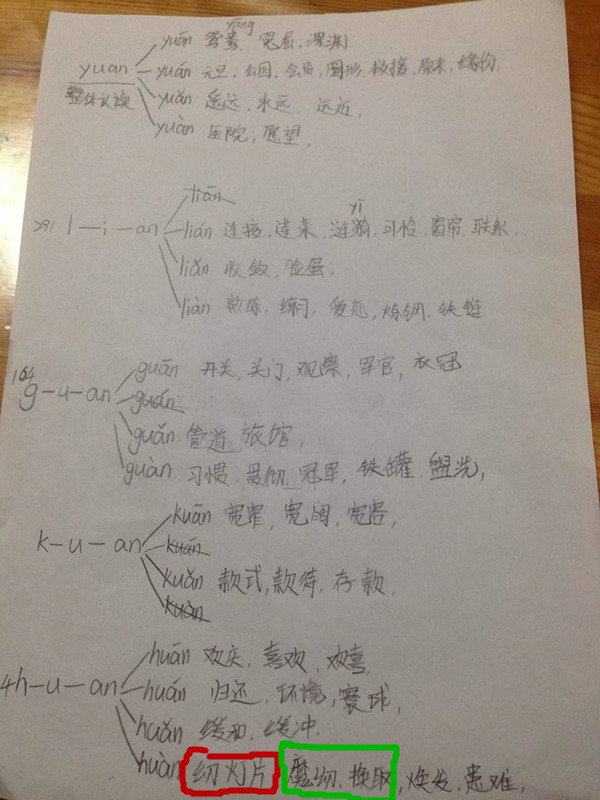 yāng
yuān 鸳鸯, 冤屈, 深渊
yuan yuán 元旦, 公园, 会员, 圆形, 救援, 原来, 缘份
整体认读 yuǎn 遥远, 永远, 远近,
yuàn 医院, 愿望,
liān
yī
291 l-i-an lián 连接, 莲菜, 涟漪, 可怜, 窗帘, 联系,
liǎn 收敛, 脸蛋,
liàn 熟练, 练习, 爱恋, 炼钢, 铁链
164
g-u-an guān 开关, 关门, 观察, 军官, 衣冠
guán
guǎn 管道, 旅馆,
guàn 习惯, 贯彻, 冠军, 铁罐, 盥洗,
kuān 宽窄, 宽阔, 宽容,
k-u-an kuán
kuǎn 款式, 款待, 存款,
kuàn
huān 欢庆, 喜欢, 欢喜,
4h-u-an huán 归还, 环境, 寰球,
huǎn 缓和, 缓冲.
huàn 幻灯片 魔幻, 换取, 焕发, 患难,